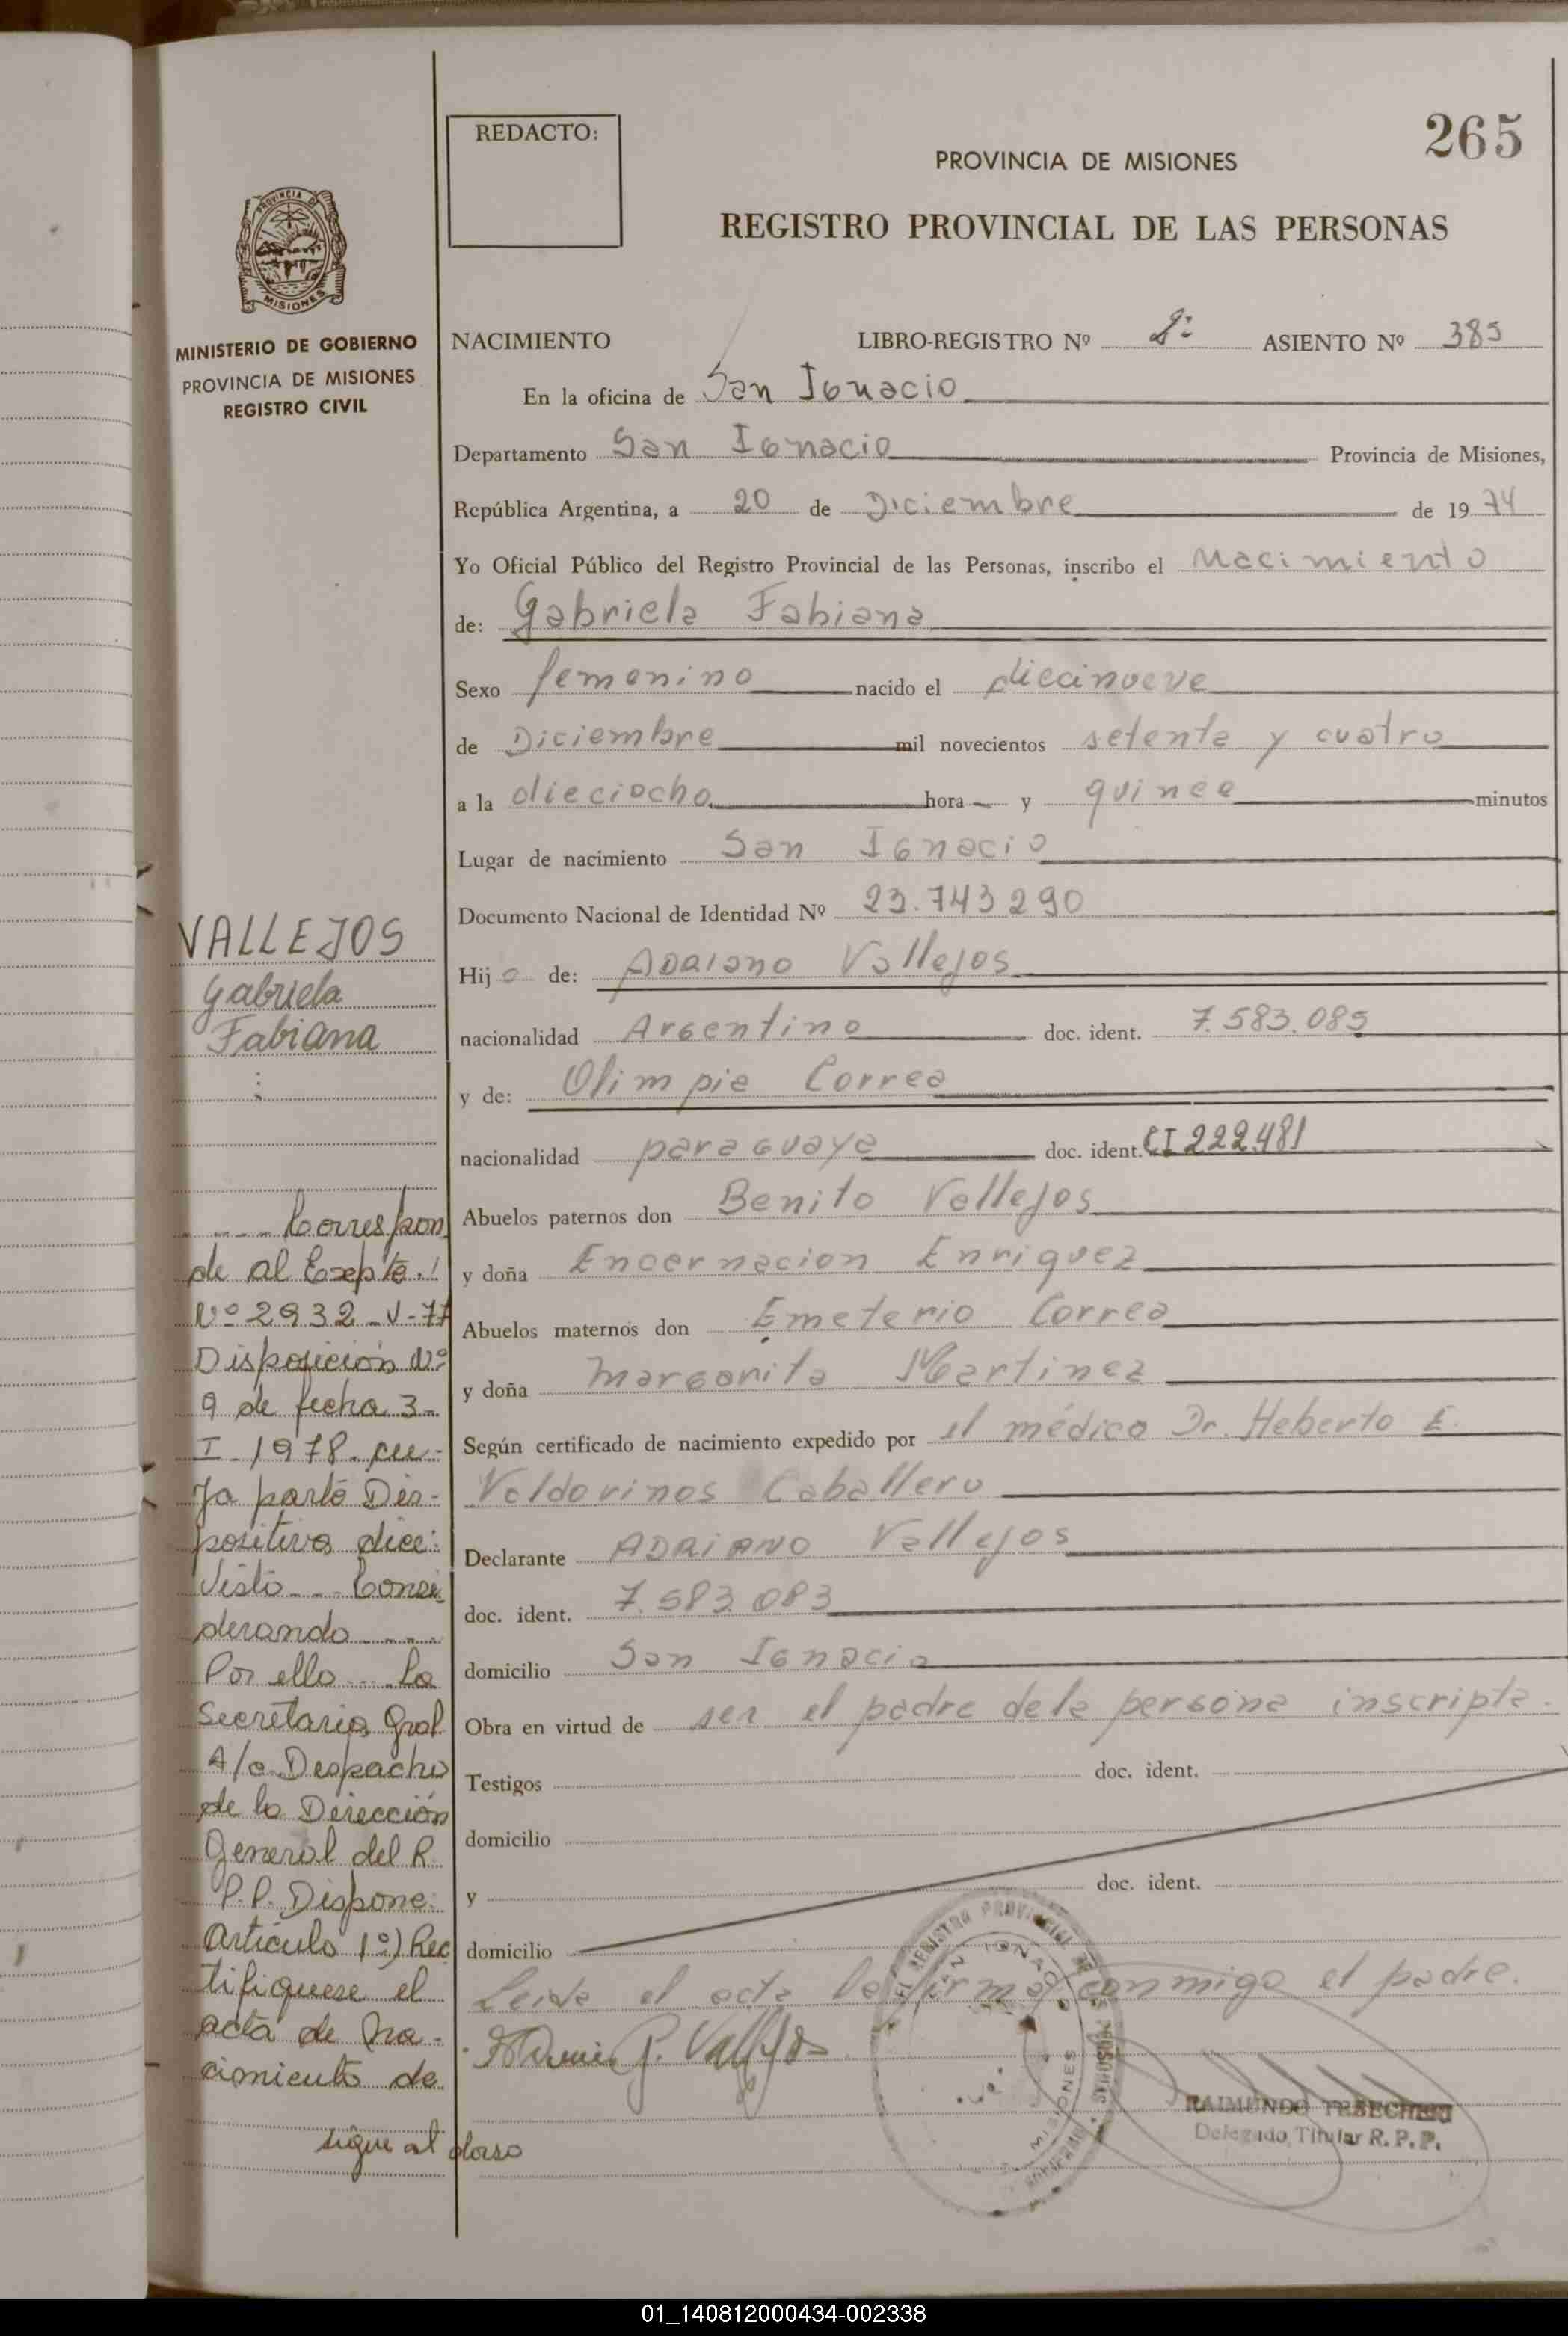 265
REDACTO:
PROVINCIA DE MISIONES
REGISTRO PROVINCIAL DE LAS PERSONAS
PROVINCIA DE
MISIONES
MINISTERIO DE GOBIERNO
PROVINCIA DE MISIONES
REGISTRO CIVIL
NACIMIENTO LIBRO-REGISTRO Nº 2º ASIENTO Nº 385
En la oficina de San Ignacio
Departamento San Ignacio Provincia de Misiones,
República Argentina, a 20 de Diciembre de 1974
Yo Oficial Público del Registro Provincial de las Personas, inscribo el Nacimiento
de: Gabriela Fabiana
Sexo femenino nacido el diecinueve
de Diciembre mil novecientos setenta y cuatro
a la dieciocho hora y quince minutos
Lugar de nacimiento San Ignacio
Documento Nacional de Identidad Nº 23.743290
Hijo de: Adriano Vallejos
nacionalidad Argentino doc. ident. 7.583.085
y de: Olimpia Correa
nacionalidad paraguaya doc. ident. CI 222481
Abuelos paternos don Benito Vallejos
y doña Encarnacion Enriquez
Abuelos maternos don Emeterio Correa
y doña Margarita Martinez
Según certificado de nacimiento expedido por el médico Dr. Heberto E.
Valdovinos Caballero
Declarante ADRIANO Vallejos
doc. ident. 7.583.083
domicilio San Ignacio
Obra en virtud de ser el padre de la persona inscripta.
Testigos doc. ident.
domicilio
y doc. ident.
domicilio
Leida el acta la firma conmigo el padre.
RAIMUNDO
Delegado Titular R.P.P.
VALLEJOS
Gabriela
Fabiana
Correspon
de al Expte.
Nº 2932-V-77
Disposición Nº
9 de fecha 3-
I-1978 cu-
ya parte Dis-
positiva dice:
Visto - - Consi
derando - - -
Por ello - - La
Secretaria Gral
A/c Despacho
de la Dirección
General del R.
P.P. Dispone:
Artículo 1º) Rec
tifiquese el
acta de na-
cimiento de
sigue al dorso
01_140812000434-002338